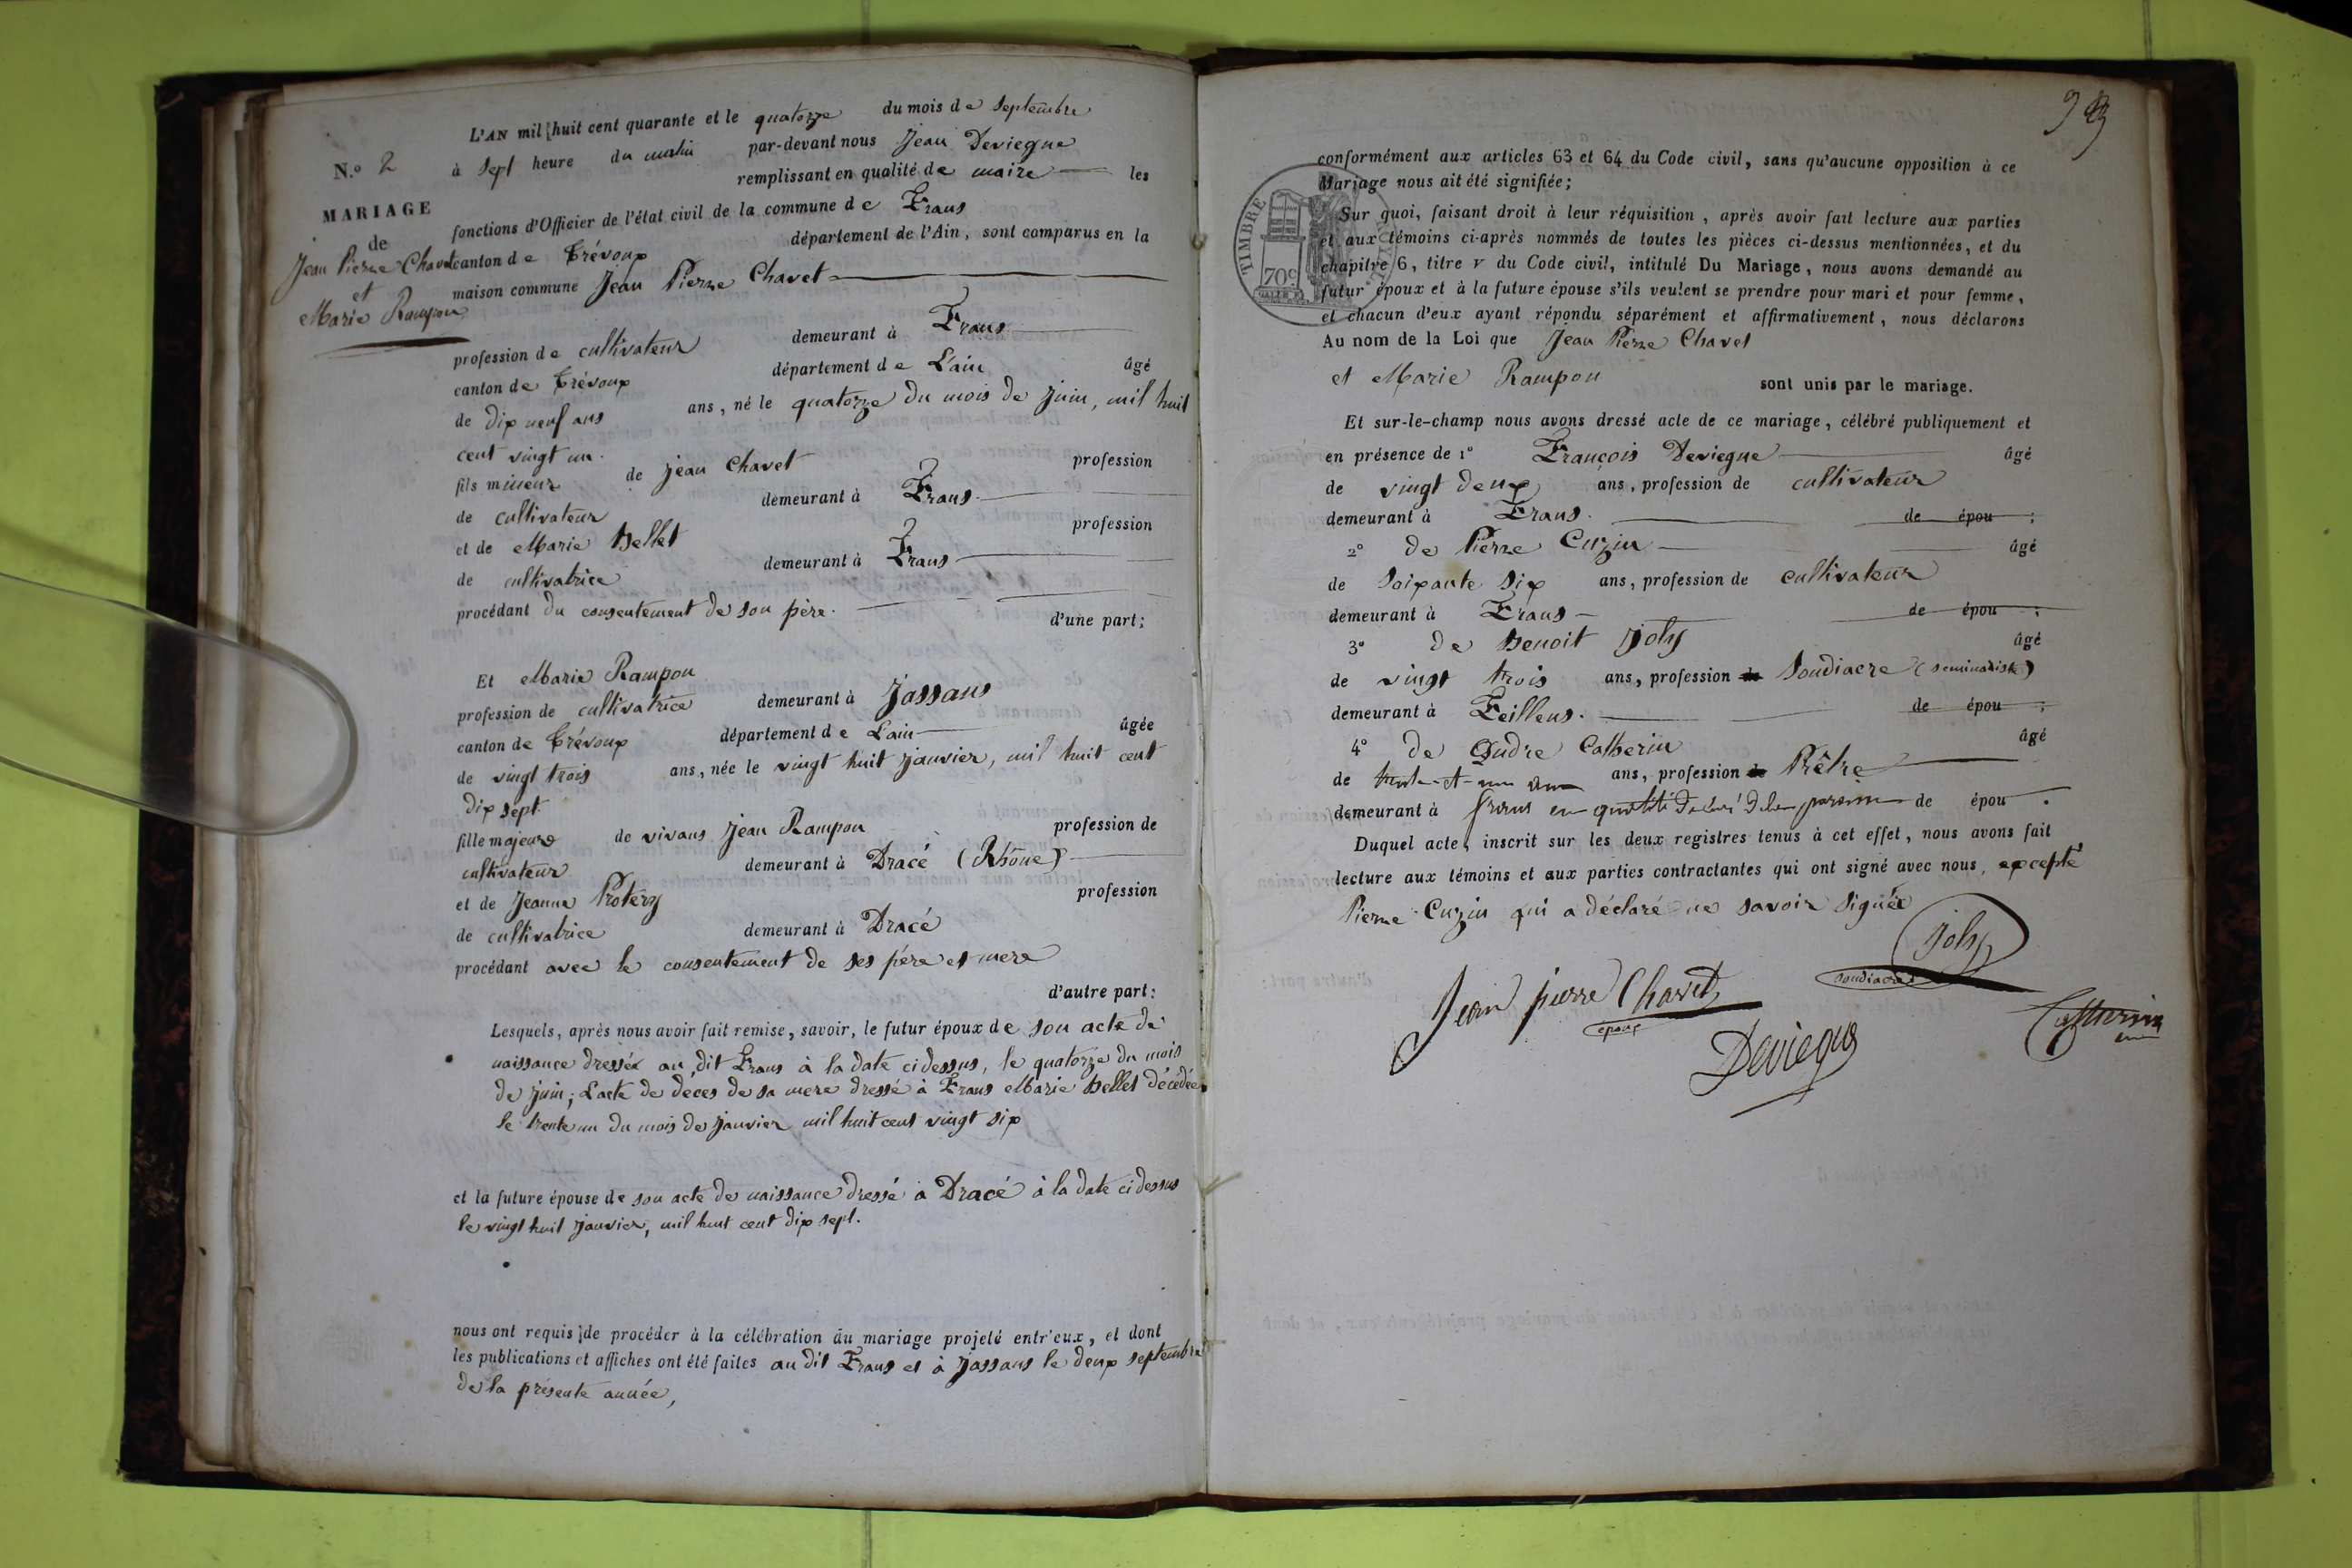 L'AN mil huit cent quarante et le quatorze du mois de Septembre
à Sept heure du matin par-devant nous Jean Deviegne
remplissant en qualité de maire les
fonctions d'Officier de l'état civil de la commune de Frans
canton de Trévoux département de l'Ain, sont comparus en la
maison commune Jean Pierre Chavet
N.º 2
MARIAGE
de
Jean Pierre Chavet
et
Marie Rampon
profession de cultivateur demeurant à Frans
canton de Trévoux département de L'ain âgé
de dix neuf ans ans, né le quatorze du mois de juin, mil huit
cent vingt un.
fils mineur de jean Chavet profession
de cultivateur demeurant à Frans.
et de Marie Bellet profession
de cultivatrice demeurant à Frans
procédant du consentement de son père.
d'une part;
Et Marie Rampon
profession de cultivatrice demeurant à Jassans
canton de Trévoux département de L'ain âgée
de vingt trois ans, née le vingt huit janvier, mil huit cent
dix sept.
fille majeure de vivans Jean Rampon profession de
cultivateur demeurant à Dracé (Rhône)
et de Jeanne Protery profession
de cultivatrice demeurant à Dracé
procédant avec le consentement de ses père et mere
d'autre part:
Lesquels, après nous avoir fait remise, savoir, le futur époux de son acte de
naissance dressée au dit Frans à la date ci dessus, le quatorze du mois
de juin; L'acte de deces de sa mere dressé à Frans Marie Bellet décédée
le trente un du mois de janvier mil huit cent vingt six
et la future épouse de son acte de naissance dressé à Dracé à la date ci dessus
le vingt huit janvier, mil huit cent dix sept.
nous ont requis de procéder à la célébration du mariage projeté entr'eux, et dont
les publications et affiches ont été faites au dit Frans et à Jassans le deux septembre
de la présente année,
conformément aux articles 63 et 64 du Code civil, sans qu'aucune opposition à ce
Mariage nous ait été signifiée;
Sur quoi, faisant droit à leur réquisition, après avoir fait lecture aux parties
et aux témoins ci-après nommés de toutes les pièces ci-dessus mentionnées, et du
chapitre 6, titre V du Code civil, intitulé Du Mariage, nous avons demandé au
futur époux et à la future épouse s'ils veulent se prendre pour mari et pour femme,
et chacun d'eux ayant répondu séparément et affirmativement, nous déclarons
Au nom de la Loi que Jean Pierre Chavet
et Marie Rampon sont unis par le mariage.
TIMBRE
70c
Et sur-le-champ nous avons dressé acte de ce mariage, célébré publiquement et
en présence de 1º François Deviegne âgé
de vingt deux ans, profession de cultivateur
demeurant à Frans. de épou ;
2º de Pierre Cuzin âgé
de Soixante six ans, profession de cultivateur
demeurant à Frans de épou ;
3º de Benoit Joly âgé
de vingt trois ans, profession de Soudiacre (seminariste)
demeurant à Feillens. de épou ;
4º de André Catherin âgé
de trente-et-un ans ans, profession de Prêtre
demeurant à frans en qualité de curé de la paroisse de épou .
Duquel acte, inscrit sur les deux registres tenus à cet effet, nous avons fait
lecture aux témoins et aux parties contractantes qui ont signé avec nous, excepté
Pierre Cuzin qui a déclaré ne savoir signée
Joly
soudiacre
Jean pierre Chavet
époux
Catherin
Deviegne